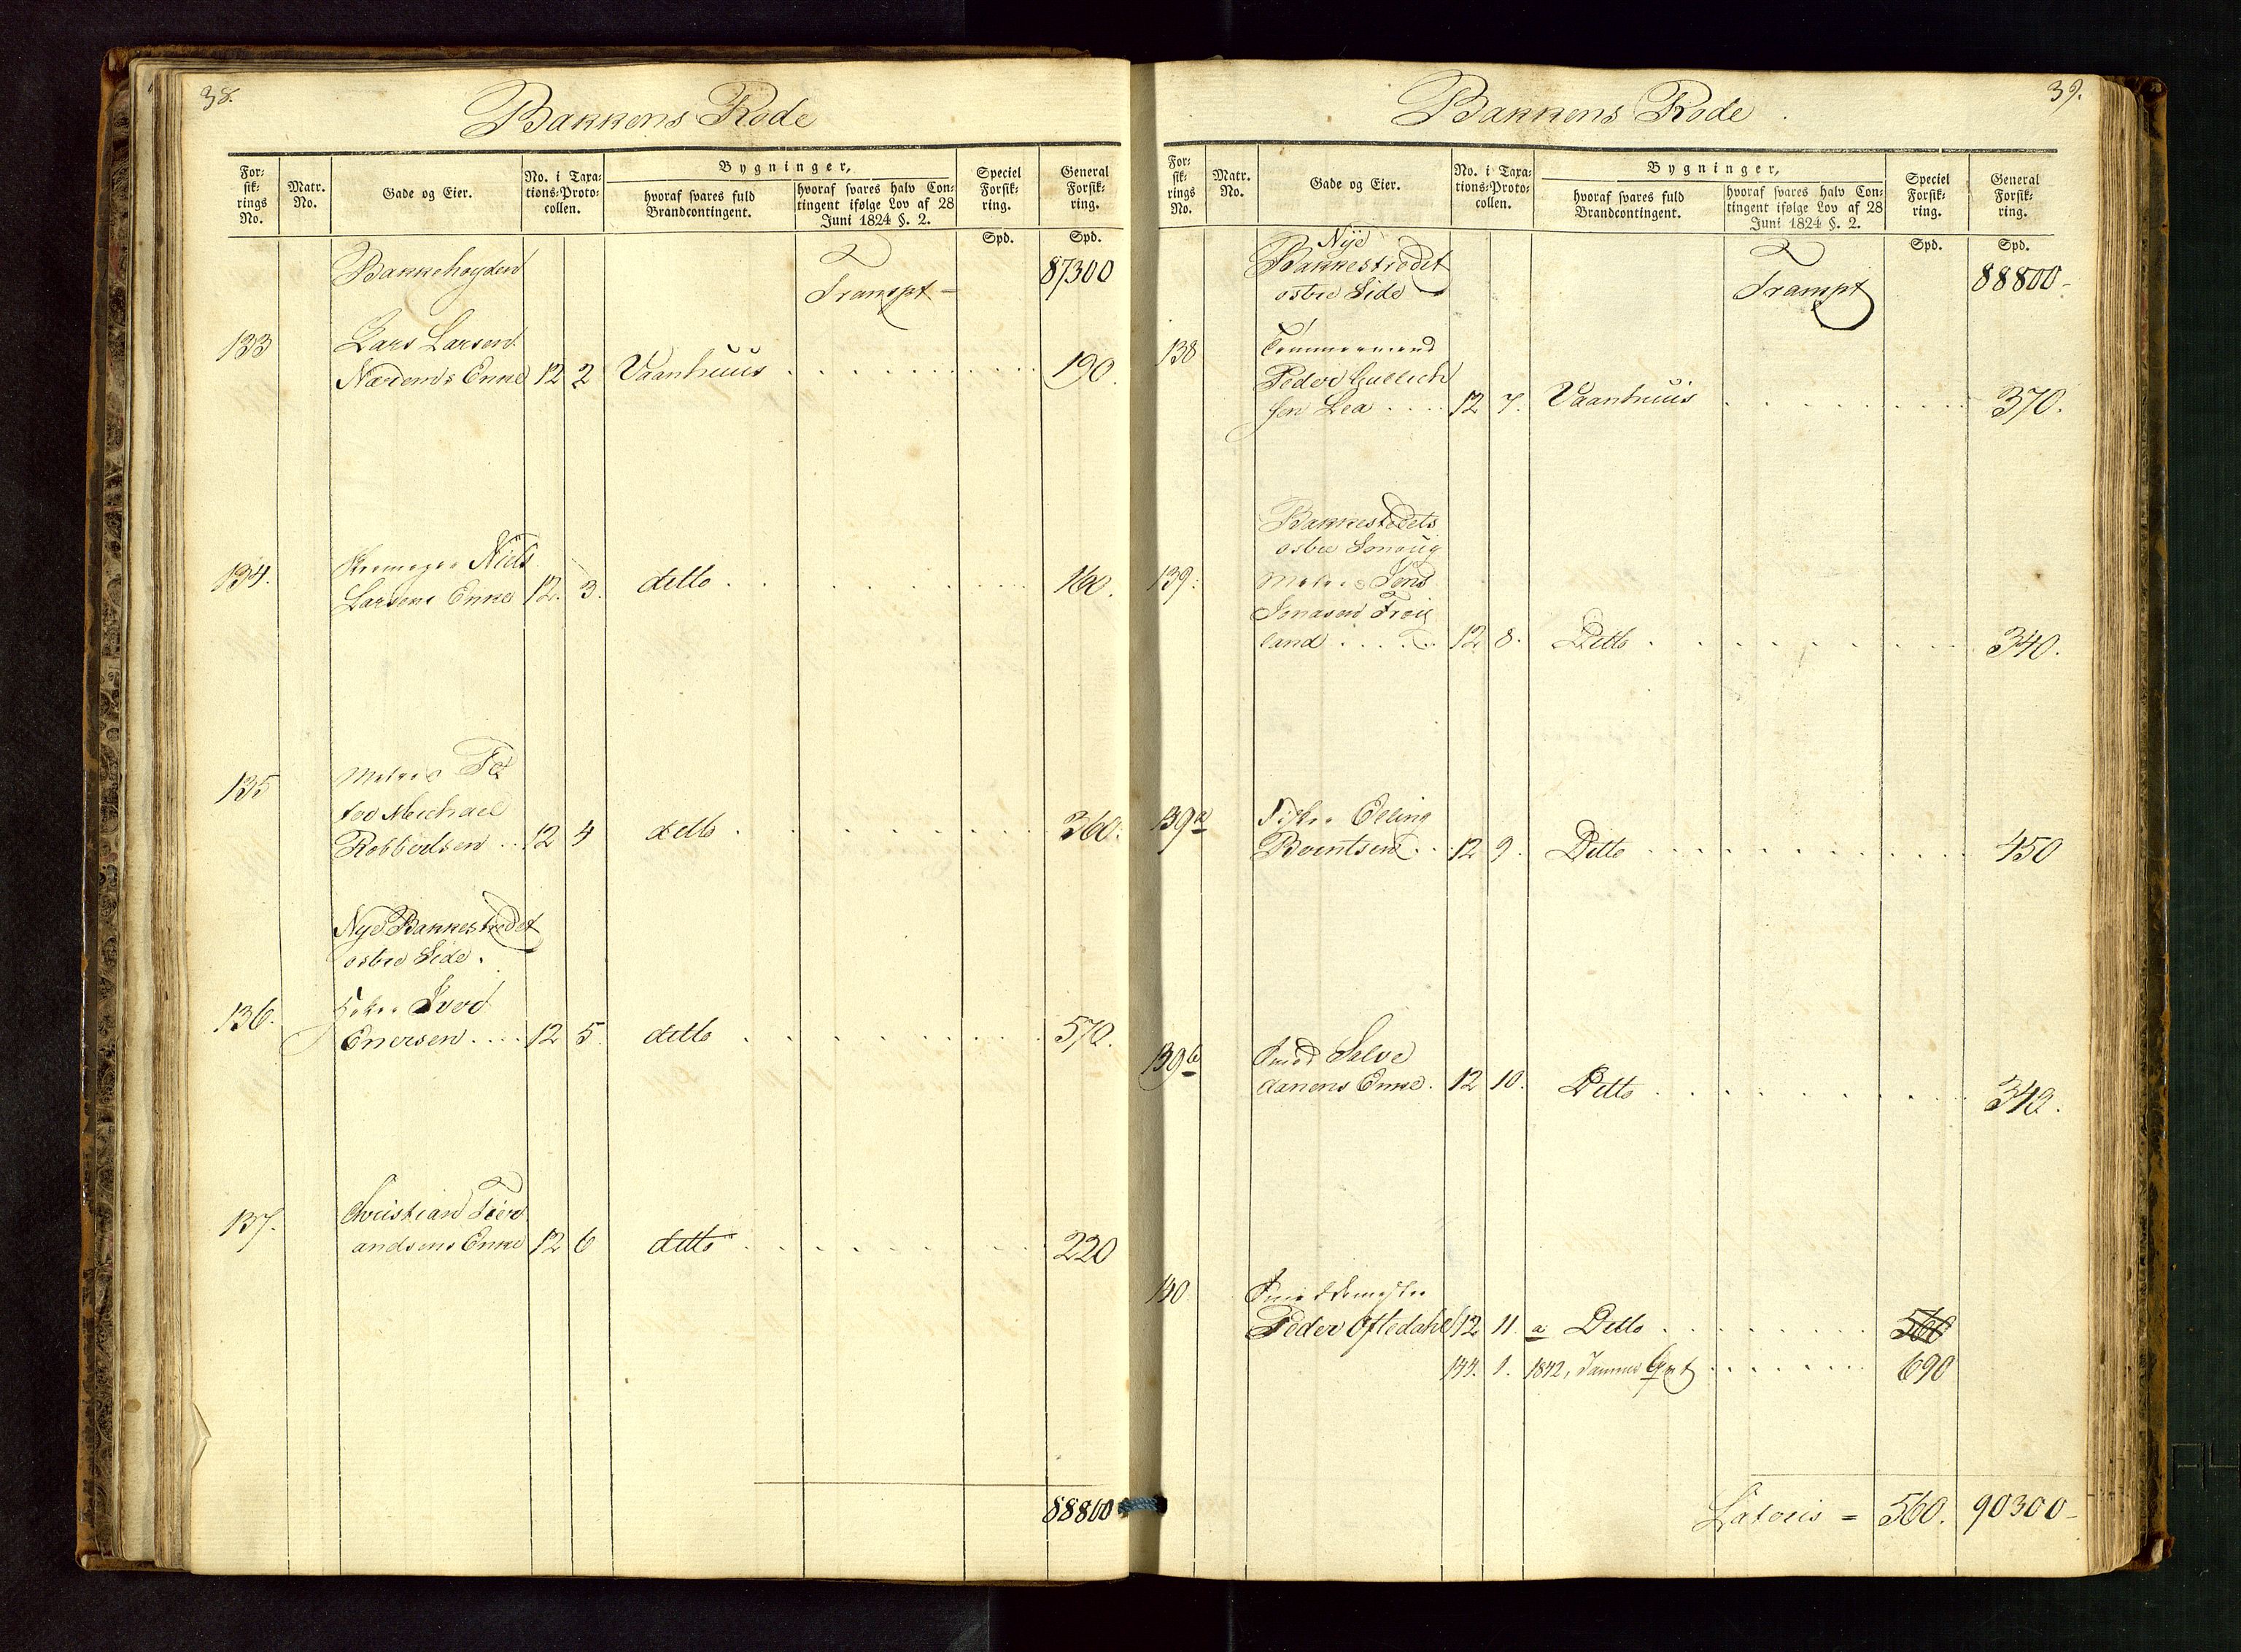 38.
Bakkens Rode
For=
sik=
rings
No.
Matr.
No.
Gade og Eier.
No. i Taxa=
tions=Proto=
collen.
Bygninger,
hvoraf svares fuld
Brandcontingent.
hvoraf svares halv Con=
tingent ifølge Lov af 28
Juni 1824 §. 2.
Speciel
Forsik=
ring.
General
Forsik=
ring.
Spd. Spd.
Bakkehøyden Transpt = 87300
133 Lars Larsen
Nærems Enke 12 2 Vaanhuus 190.
134. Niels
Larsens Enke 12. 3. ditto 160.
135
Michael
Robbertsen 12 4 ditto 360.
Nye Bakkestrædet
østre Side.
136. Iver
Enersen 12 5. ditto 570.
137. Christian
andsens Enke 12 6 ditto 220
88800
39.
Bakkens Rode
For=
sik=
rings
No.
Matr.
No.
Gade og Eier.
No. i Taxa=
tions=Proto=
collen.
Bygninger,
hvoraf svares fuld
Brandcontingent.
hvoraf svares halv Con=
tingent ifølge Lov af 28
Juni 1824 §. 2.
Speciel
Forsik=
ring.
General
Forsik=
ring.
Spd. Spd.
Nye
Bakkestrædet
østre Side Transpt 88800
138 Tømmermand
Peder Gullich
sen Lea 12 7. Vaanhuus 370.
Bakkestrædets
østre Smaug
139. Jens
Jonasen Trøi
land 12 8. Ditto 340.
139a Elling
Berntsen 12 9. Ditto 450
139b Smed
Enke. 12 10. Ditto 340.
140
Peder Oftedahl 12 11 a Ditto 560
144. 1. 1842, 690
Lateris = 560. 90300